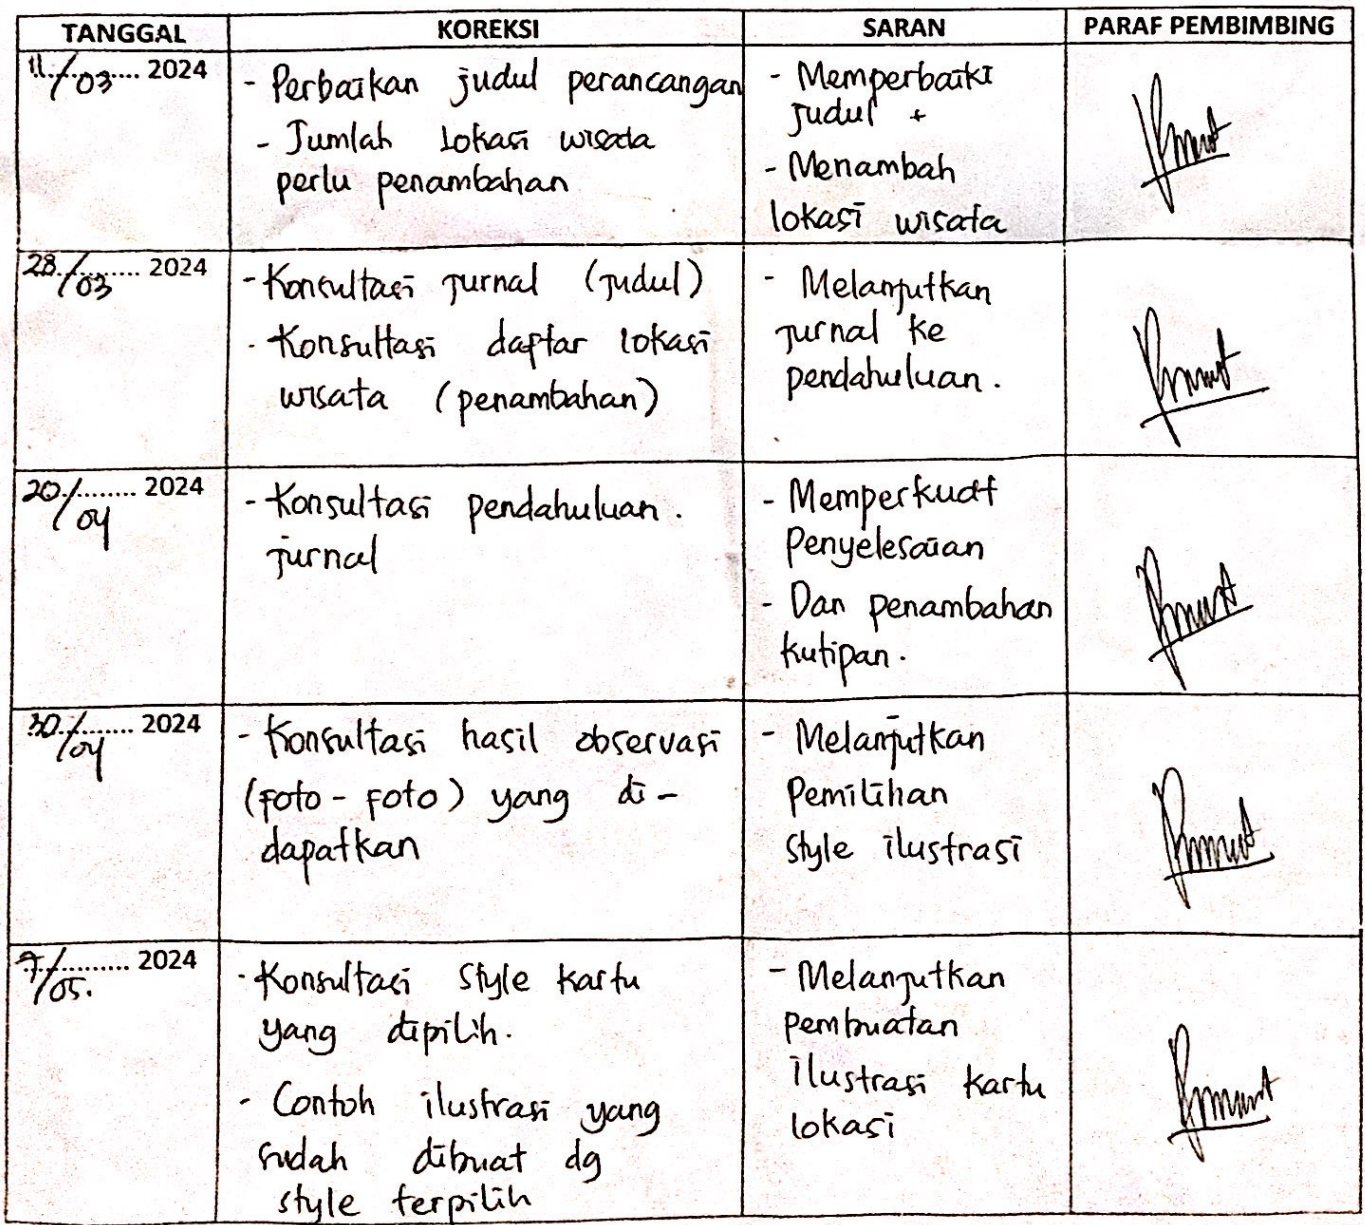 TANGGAL KOREKSI SARAN PARAF PEMBIMBING
11./03....... 2024
- Perbaikan judul perancangan
- Jumlah lokasi wisata
perlu penambahan
- Memperbaiki
judul +
- Menambah
lokasi wisata
28./03....... 2024
- Konsultasi jurnal (judul)
- Konsultasi daftar lokasi
wisata (penambahan)
- Melanjutkan
jurnal ke
pendahuluan.
20./04....... 2024
- Konsultasi pendahuluan.
jurnal
- Memperkuat
Penyelesaian
- Dan penambahan
kutipan.
30./04....... 2024
- Konsultasi hasil observasi
(foto - foto) yang di -
dapatkan
- Melanjutkan
Pemilihan
style ilustrasi
7/05.......... 2024
- Konsultasi style kartu
yang dipilih.
- Contoh ilustrasi yang
sudah dibuat dg
style terpilih
- Melanjutkan
pembuatan
ilustrasi kartu
lokasi